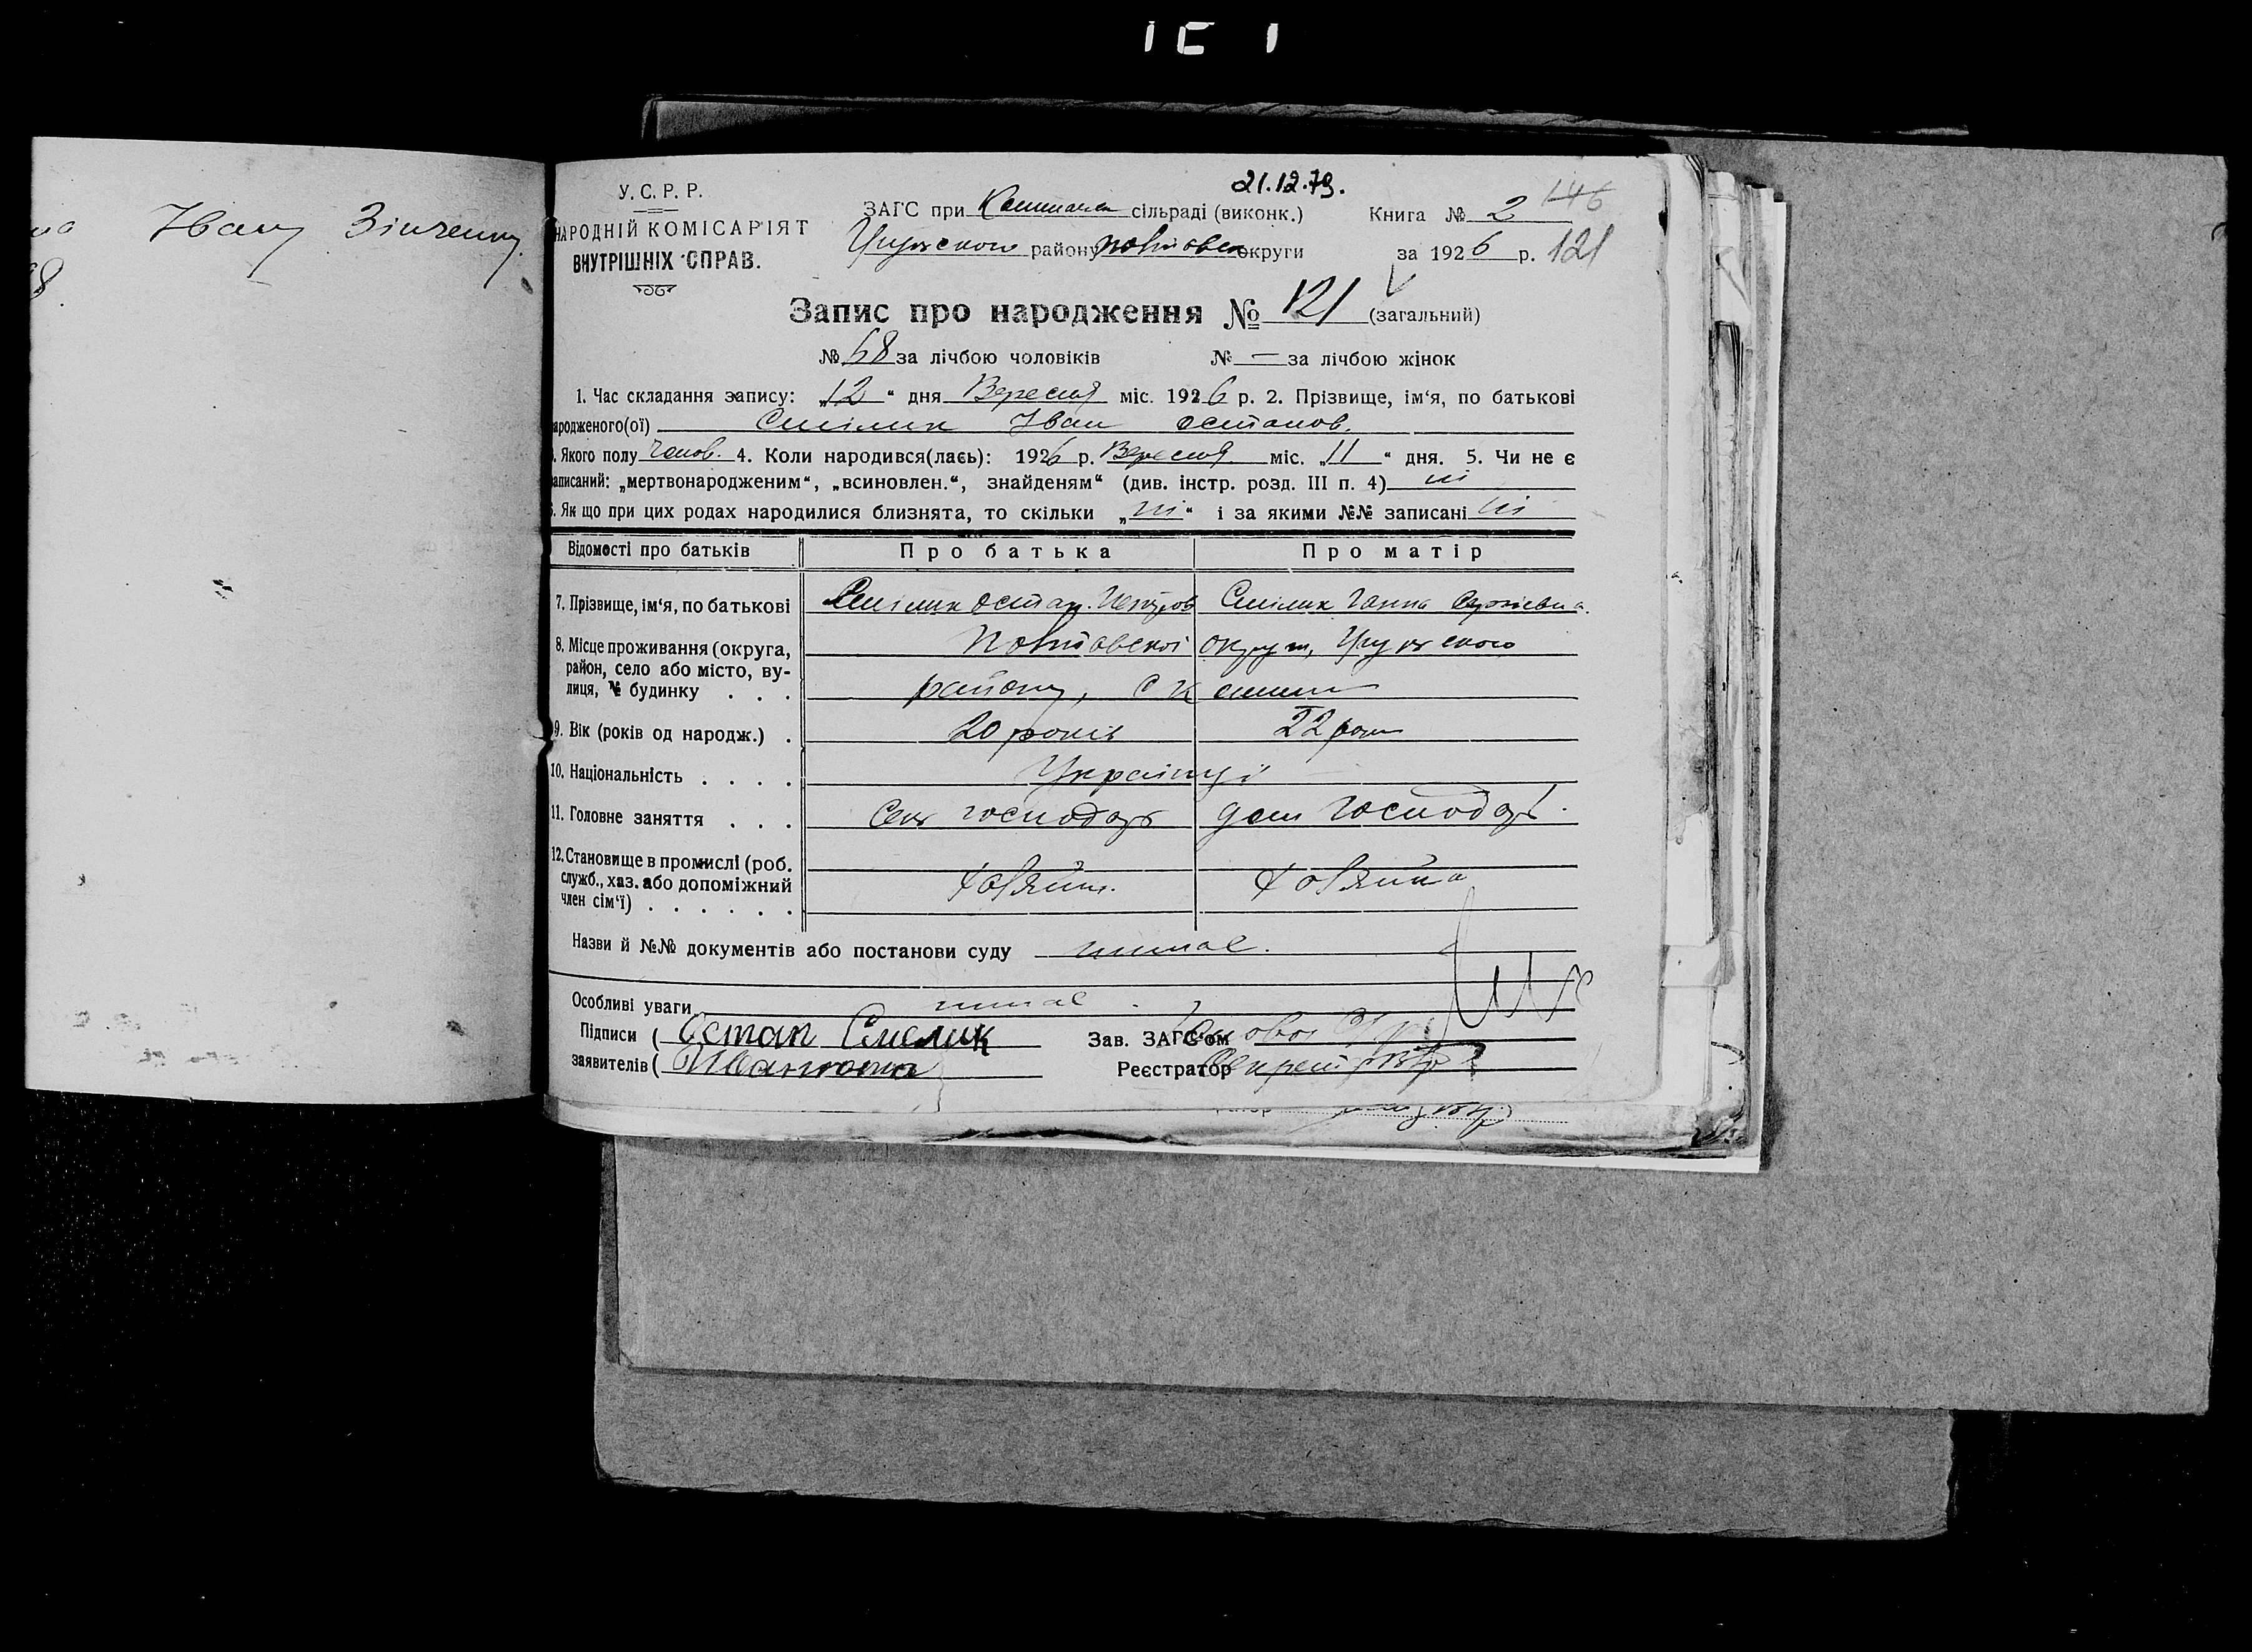 Івану Зінченку.
8.
21.12.79.
146
У.С.Р.Р.
НАРОДНІЙ КОМІСАРІЯТ
ВНУТРІШНІХ СПРАВ.
ЗАГС при сільраді (виконк.) Книга № 2
району Полтавськ округи за 1926 р. 121
Запис про народження № 121 (загальний)
№ 68 за лічбою чоловіків № — за лічбою жінок
1. Час складання запису: „12“ дня Вересня міс. 1926 р. 2. Прізвище, ім‘я, по батькові
ародженого(ої) Смілик Іван Остапов.
. Якого полу Чолов. 4. Коли народився(лась): 1926 р. Вересня міс. „11“ дня. 5. Чи не є
аписаний: „мертвонародженим“, „всиновлен.“, знайденям“ (див. інстр. розд. III п. 4) ні
6. Як що при цих родах народилися близнята, то скільки „ні“ і за якими №№ записані ні
Відомості про батьків Про батька Про матір
7. Прізвище, ім‘я, по батькові Смілик Остап. Петров Смілик Ганна Сергієвна.
8. Місце проживання (округа, Полтавської округи,
район, село або місто, ву-
лиця, № будинку . . . району, с
9. Вік (років од народж.) . 20 років 22 роки
10. Національність . . . . Українці
11. Головне заняття . . . Сель господар дом господар.
12. Становище в промислі (роб.
служб., хаз. або допоміжний Хазяїн. Хазяйка
член сім‘ї) . . . . . .
Назви й №№ документів або постанови суду немає.
Особливі уваги немає.
Підписи ( Остап Смелик Зав. ЗАГС‘ом Голова
заявителів ( Реєстратор Секретар